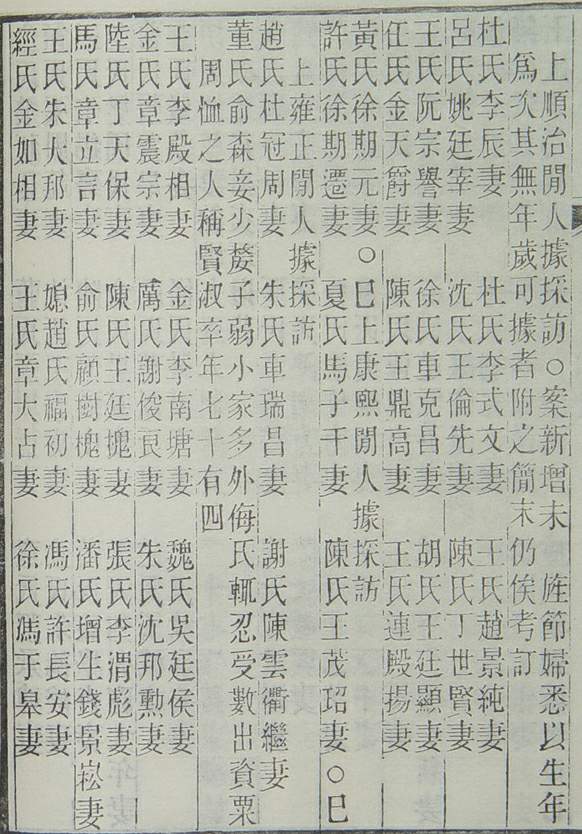 上順治閒人據採訪○案新增未　旌節婦悉以生年
爲次其無年歲可據者附之簡末仍俟考訂
杜氏李辰妻　杜氏李式文妻　王氏趙景純妻
呂氏姚廷宰妻　沈氏王倫先妻　陳氏丁世賢妻
王氏阮宗譽妻　徐氏車克昌妻　胡氏王廷顯妻
任氏金天爵妻　陳氏王鼎高妻　王氏連殿揚妻
黃氏徐期元妻○巳上康熙閒人據採訪
許氏徐期遷妻　夏氏馬子干妻　陳氏王茂玿妻○巳
上雍正閒人據採訪
趙氏杜冠周妻　朱氏車瑞昌妻　謝氏陳雲衢繼妻
董氏俞森妾少嫠子弱小家多外侮氏輒忍受數出資粟
周恤之人稱賢淑卒年七十有四
王氏李殿相妻　金氏李南塘妻　魏氏吳廷侯妻
金氏章震宗妻　厲氏謝俊良妻　朱氏沈邦勲妻
陸氏丁天保妻　陳氏王廷槐妻　張氏李渭彪妻
馬氏章立言妻　俞氏顧樹槐妻　潘氏增生錢景崧妻
王氏朱大邦妻　媳趙氏福初妻　馮氏許長安妻
經氏金如相妻　王氏章大占妻　徐氏馮于皋妻